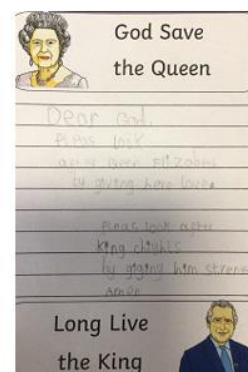 God Save
the Queen
Dear God,
Pleas look
after Queen Elizabeth
by giving here love.
Pleas look after
king
by giging him stren
Amen
Long Live
the King